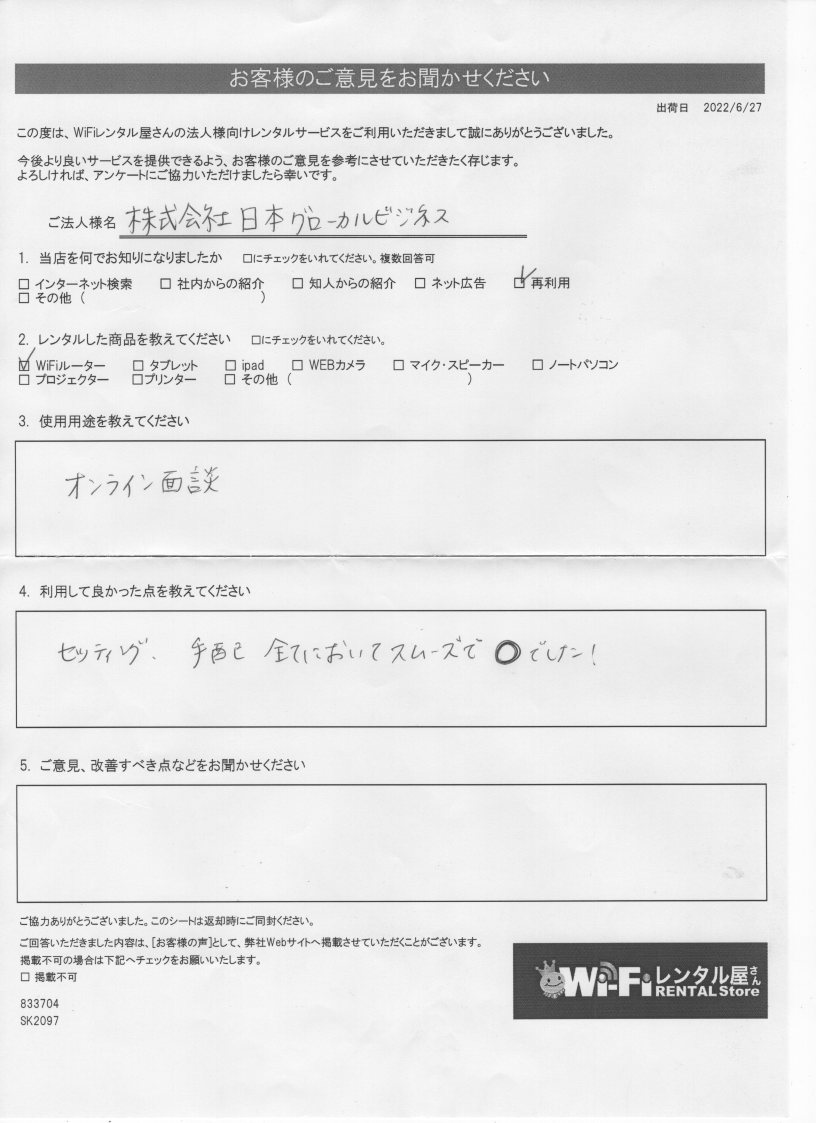 お客様のご意見をお聞かせください
出荷日 2022/6/27
この度は、WiFiレンタル屋さんの法人様向けレンタルサービスをご利用いただきまして誠にありがとうございました。
今後より良いサービスを提供できるよう、お客様のご意見を参考にさせていただきたく存じます。
よろしければ、アンケートにご協力いただけましたら幸いです。
ご法人様名 株式会社 日本グローカルビジネス
1. 当店を何でお知りになりましたか □にチェックをいれてください。複数回答可
□ インターネット検索 □ 社内からの紹介 □ 知人からの紹介 □ ネット広告 ☑ 再利用
□ その他 ( )
2. レンタルした商品を教えてください □にチェックをいれてください。
☑ WiFiルーター □ タブレット □ ipad □ WEBカメラ □ マイク・スピーカー □ ノートパソコン
□ プロジェクター □プリンター □ その他 ( )
3. 使用用途を教えてください
オンライン面談
4. 利用して良かった点を教えてください
セッティング、手配に 全てにおいてスムーズで ○でした!
5. ご意見、改善すべき点などをお聞かせください
ご協力ありがとうございました。このシートは返却時にご同封ください。
ご回答いただきました内容は、[お客様の声]として、弊社Webサイトへ掲載させていただくことがございます。
掲載不可の場合は下記へチェックをお願いいたします。
□ 掲載不可
833704
SK2097
Wi-Fiレンタル屋さん
RENTAL Store